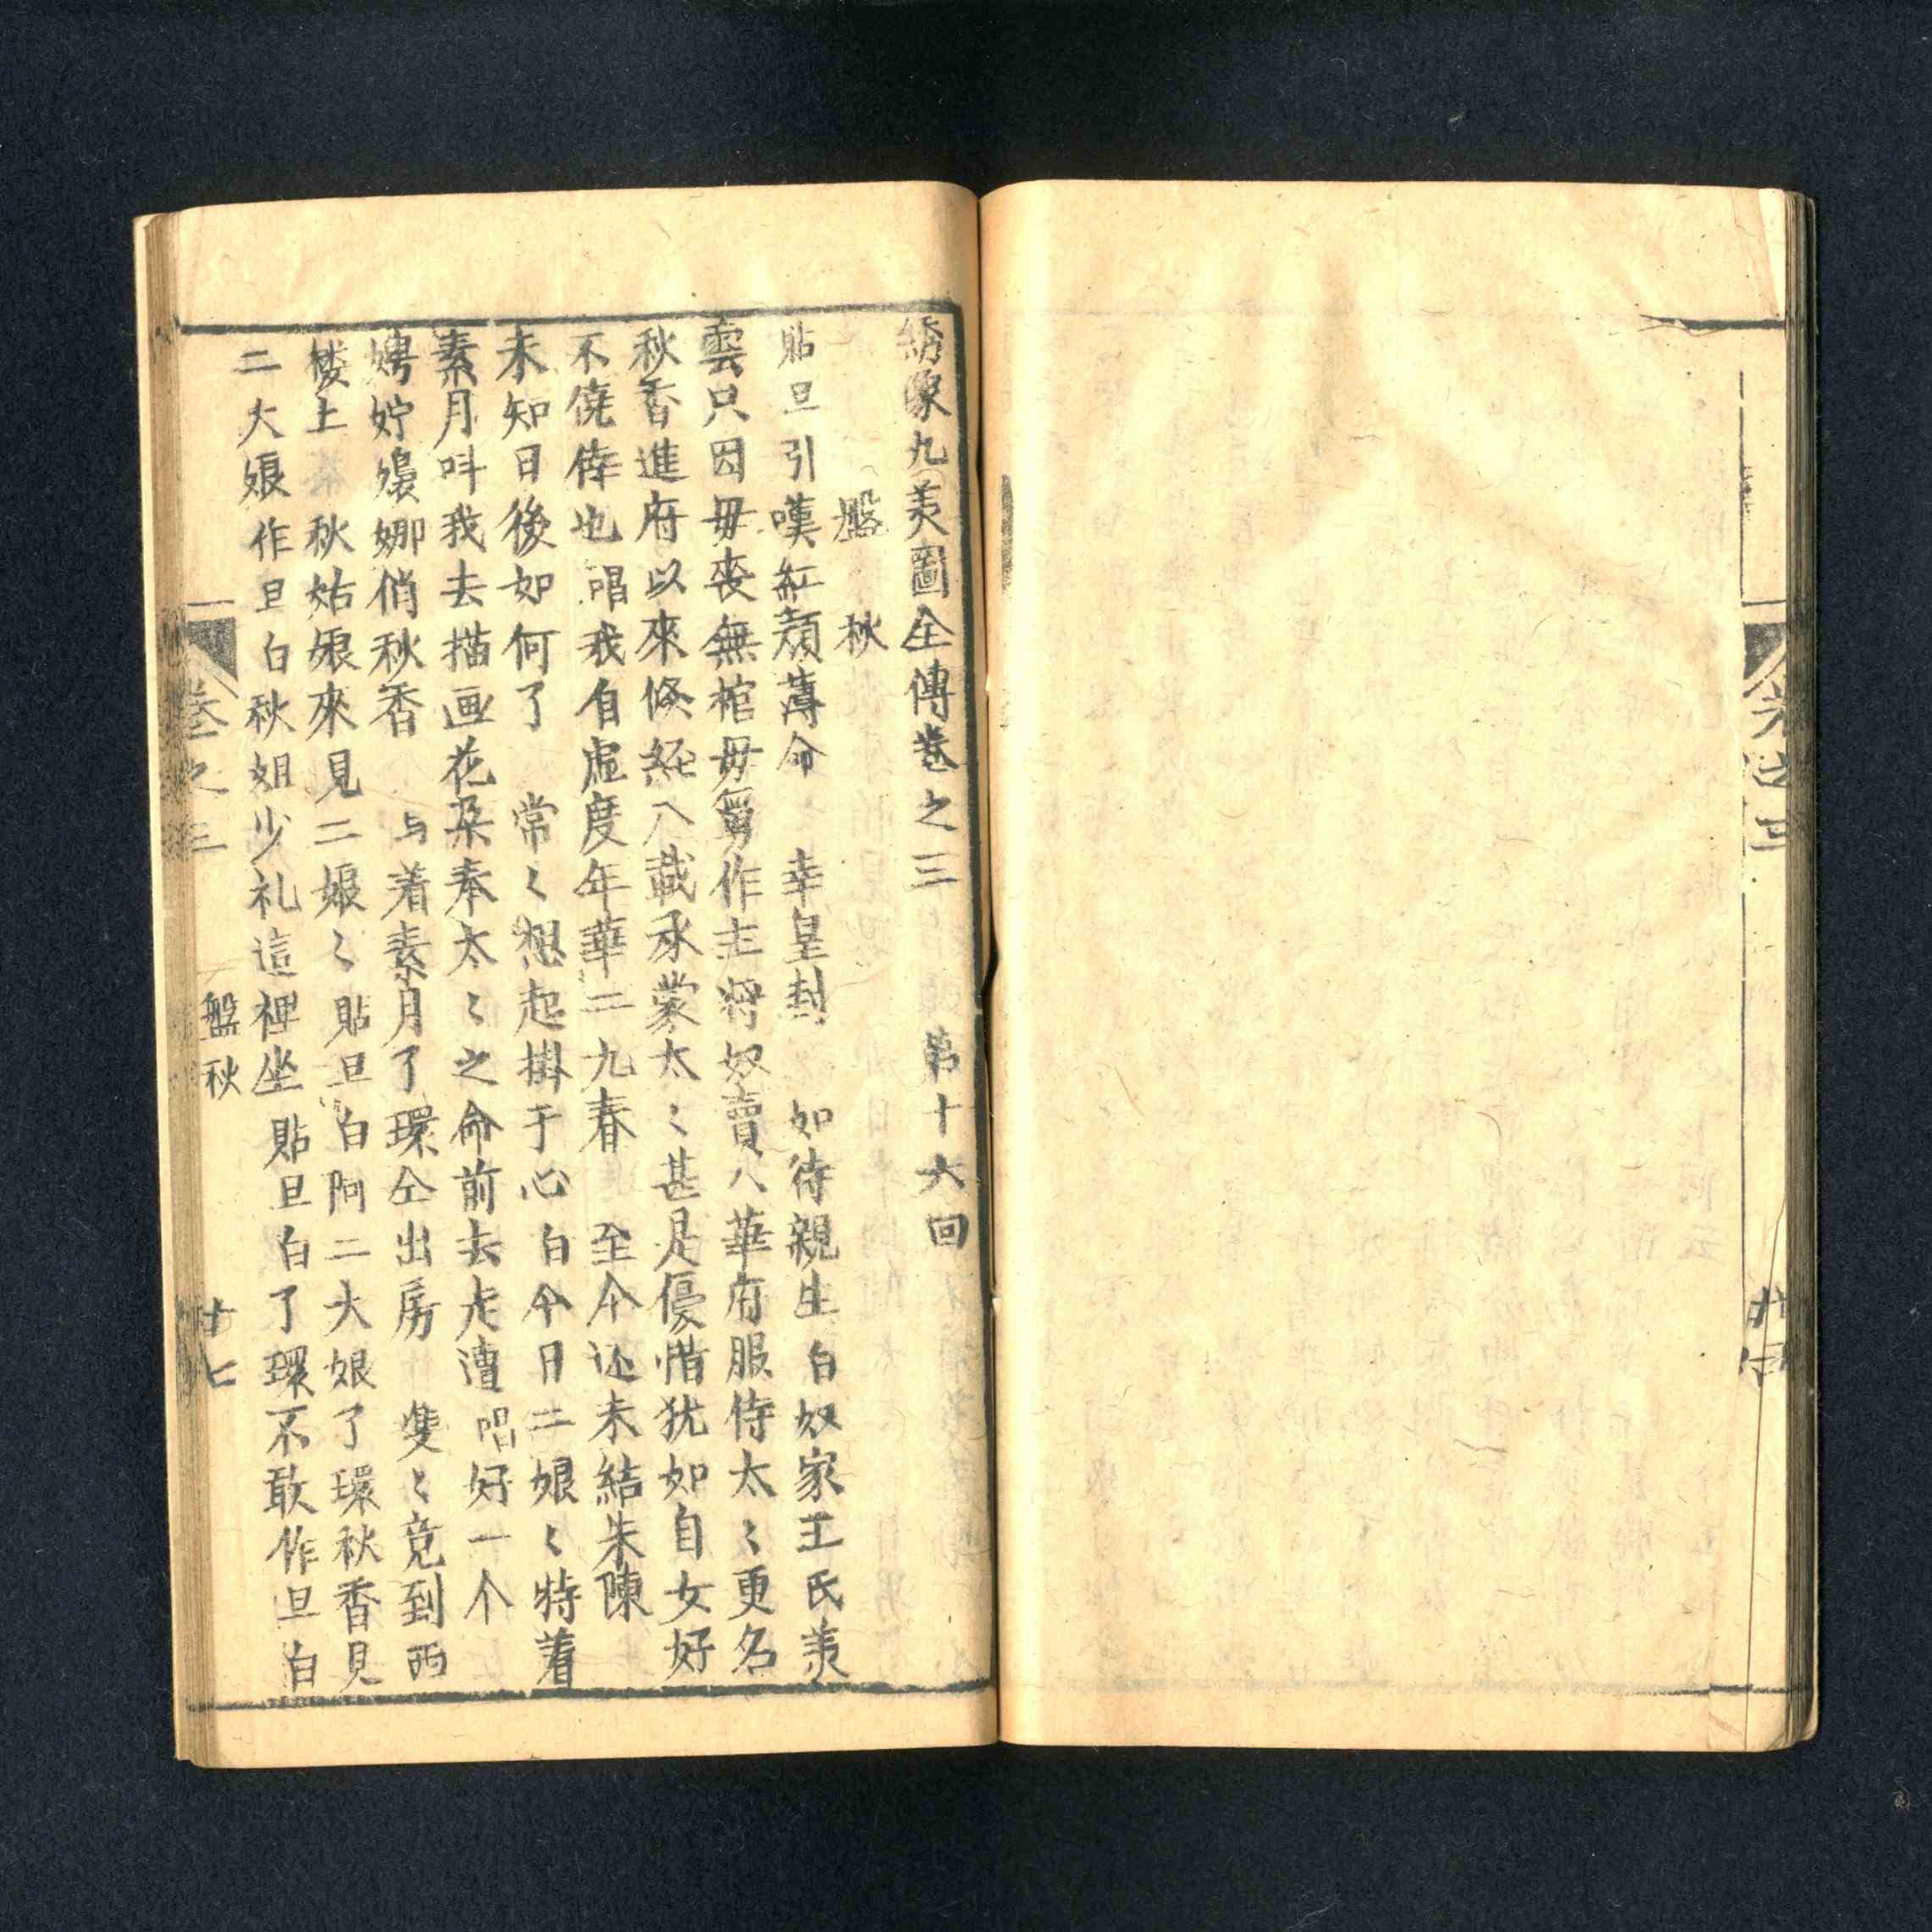 綉像九美圖全傳卷之三　第十六回
盤秋
貼旦引嘆紅顏薄命　幸皇封　如待親生白奴家王氏美
雲只因毋丧無棺毋舅作主将奴賣入華府服侍太〻更名
秋香進府以來倏經八載承蒙太〻甚是優惜犹如自女好
不僥倖也唱我自虛度年華二九春　至今还未結朱陳
未知日後如何了　常〻想起掛于心白今日二娘〻特着
素月呌我去描画花朵奉太〻之命前去走漕唱好一个
娉婷嬝娜俏秋香　与着素月了環仝出房　雙〻竟到西
楼上　秋姑娘來見二娘〻貼旦白阿二大娘了環秋香見
二大娘作旦白秋姐少礼這裡坐貼旦白了環不敢作旦白
卷之三　盤秋　十七